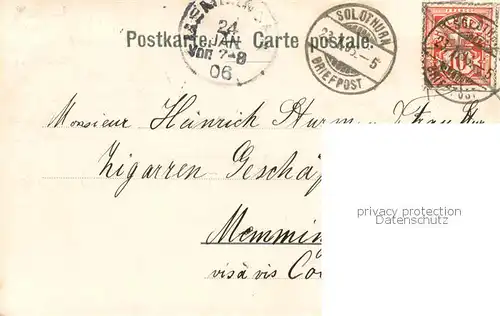 Postkarte. Carte postale.
24
JAN
VOR 7-8
06
SOLOTHURN
BRIEFPOST
10
Monsieur Heinrich Sturm
Zigarren Geschäf
Memmin
visà vis Co
privacy protection
DATASTORE